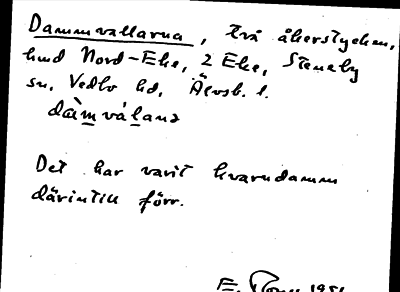 Dammvallarna, två åkerstycken,
hmd Nord-Eke, 2 Eke, Steneby
sn, Vedbo hd, Älvsb. l.
dàmválanɘ
Det har varit kvarndamm
därintill förr.
E.